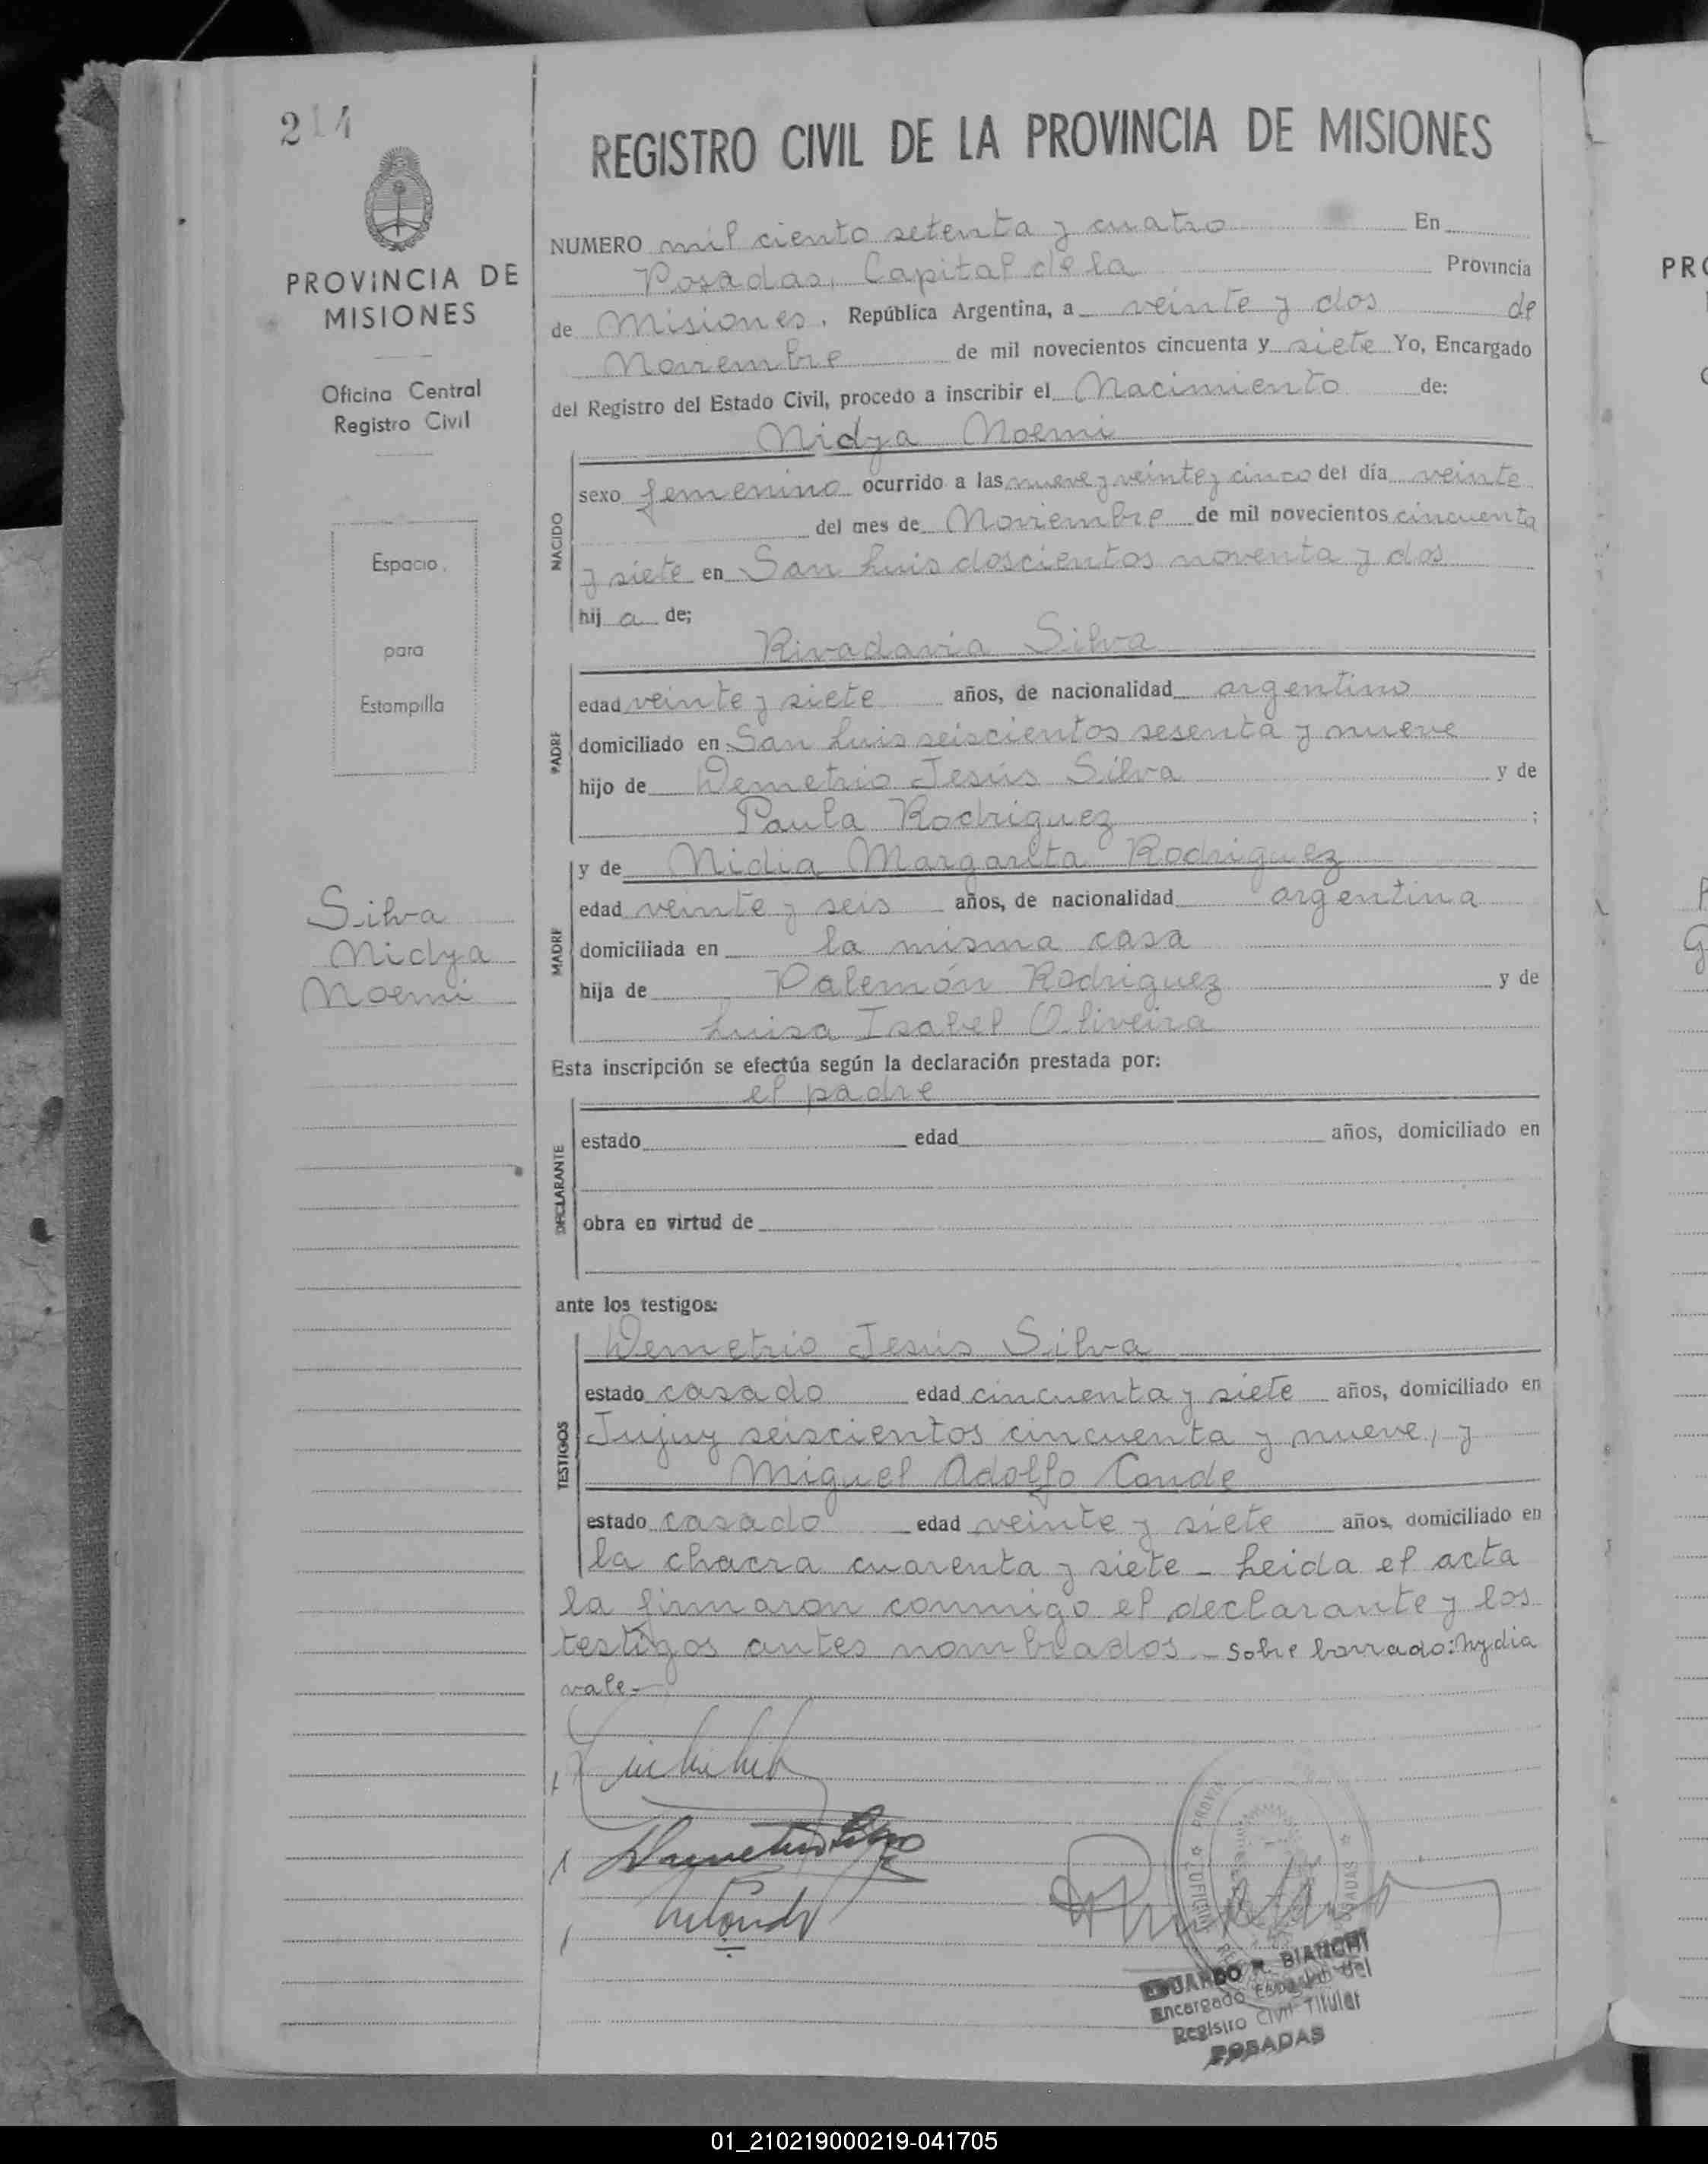 214
PROVINCIA DE
MISIONES
Oficina Central
Registro Civil
Espacio
para
Estampilla
Silva
Nidya
Noemi
REGISTRO CIVIL DE LA PROVINCIA DE MISIONES
NUMERO mil ciento setenta y cuatro En
Posadas, Capital de la Provincia
de Misiones, República Argentina, a veinte y dos de
Noviembre de mil novecientos cincuenta y siete Yo, Encargado
del Registro del Estado Civil, procedo a inscribir el Nacimiento de:
Nidya Noemi
NACIDO
sexo femenino ocurrido a las nueve y veinte y cinco del día veinte
del mes de Noviembre de mil novecientos cincuenta
y siete en San Luis doscientos noventa y dos
hij a de;
Rivadavia Silva
PADRE
edad veinte y siete años, de nacionalidad argentino
domiciliado en San Luis seiscientos sesenta y nueve
hijo de Demetrio Jesús Silva y de
Paula Rodriguez ;
y de Nidia Margarita Rodriguez
MADRE
edad veinte y seis años, de nacionalidad argentina
domiciliada en la misma casa
hija de Palemón Rodriguez y de
Luisa Isabel Oliveira
Esta inscripción se efectúa según la declaración prestada por:
el padre
DECLARANTE
estado edad años, domiciliado en
obra en virtud de
ante los testigos:
Demetrio Jesús Silva
TESTIGOS
estado casado edad cincuenta y siete años, domiciliado en
Jujuy seiscientos cincuenta y nueve, y
Miguel Adolfo Conde
estado casado edad veinte y siete años, domiciliado en
la chacra cuarenta y siete - Leida el acta
la firmaron conmigo el declarante y los
testigos antes nombrados. - Sobre borrado: Nydia
vale -
EDUARDO R. BIANCHI
Encargado del
Registro Civil Titular
POSADAS
PRO
01_210219000219-041705